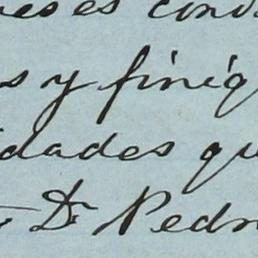 eses cond
s y finiq
idades qu
Dr Pedr